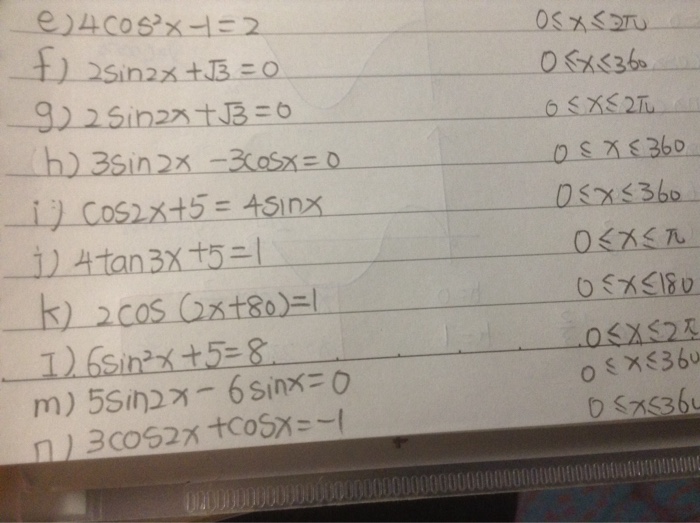 e) 4cos²x-1=2 0≤x≤2π
f) 2sin2x+√3=0 0≤x≤360
g) 2sin2x+√3=0 0≤x≤2π
h) 3sin2x-3cosx=0 0≤x≤360
i) cos2x+5=4sinx 0≤x≤360
j) 4tan3x+5=1 0≤x≤π
k) 2cos(2x+80)=1 0≤x≤180
I) 6sin²x+5=8 0≤x≤2π
m) 5sin2x-6sinx=0 0≤x≤360
n) 3cos2x+cosx=-1 0≤x≤360